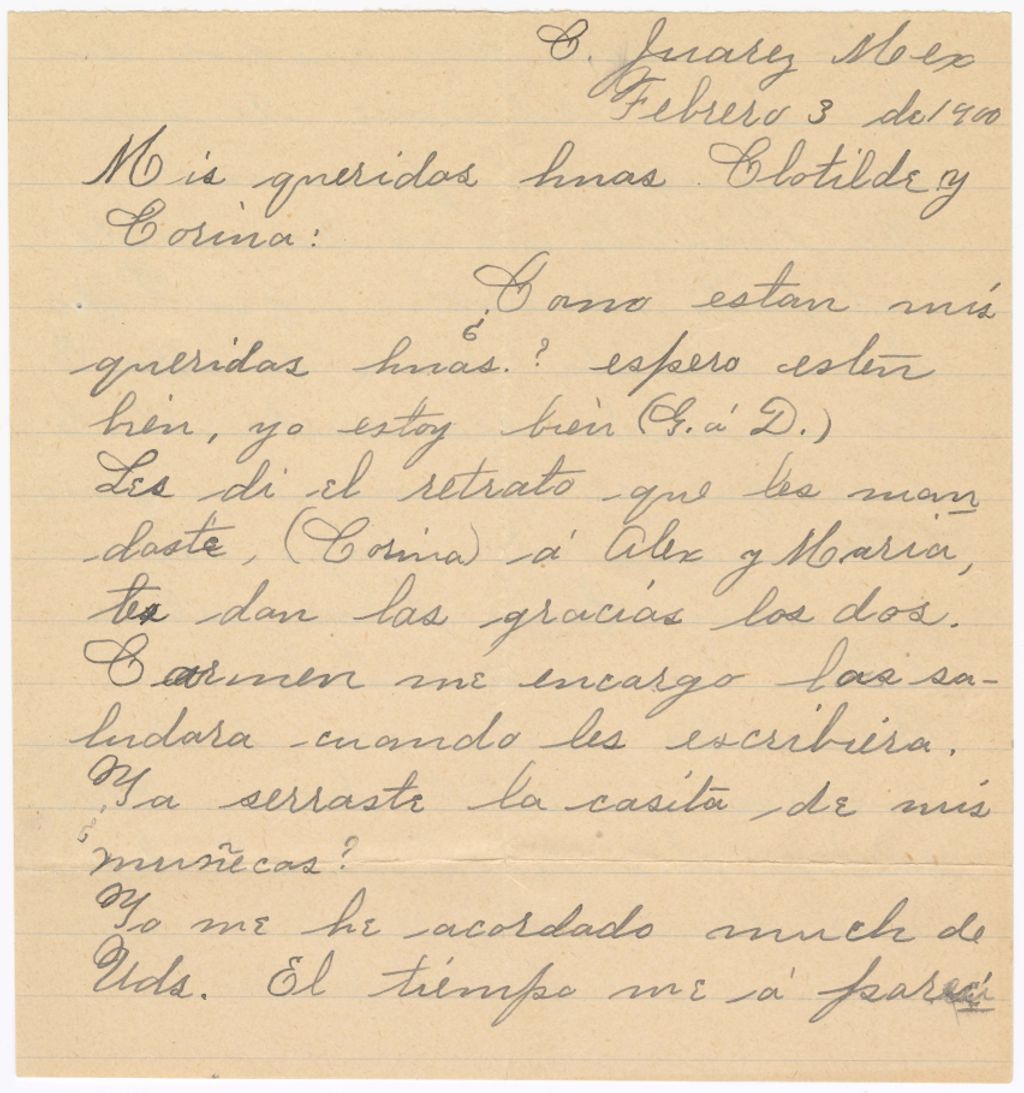 C. Juarez Mex
Febrero 3 de 1900
Mis queridas hnas Clotilde y
Corina:
¿Como estan mis
queridas hnas.? espero estén
bien, yo estoy bien (G. á D.)
Les di el retrato que les man
daste, (Corina) á Alex y Maria,
tes dan las gracias los dos.
Carmen me encargo las sa-
ludara cuando les escribiera.
¿Ya serraste la casita de mis
muñecas?
Yo me he acordado much de
Uds. El tiempo me á pareci